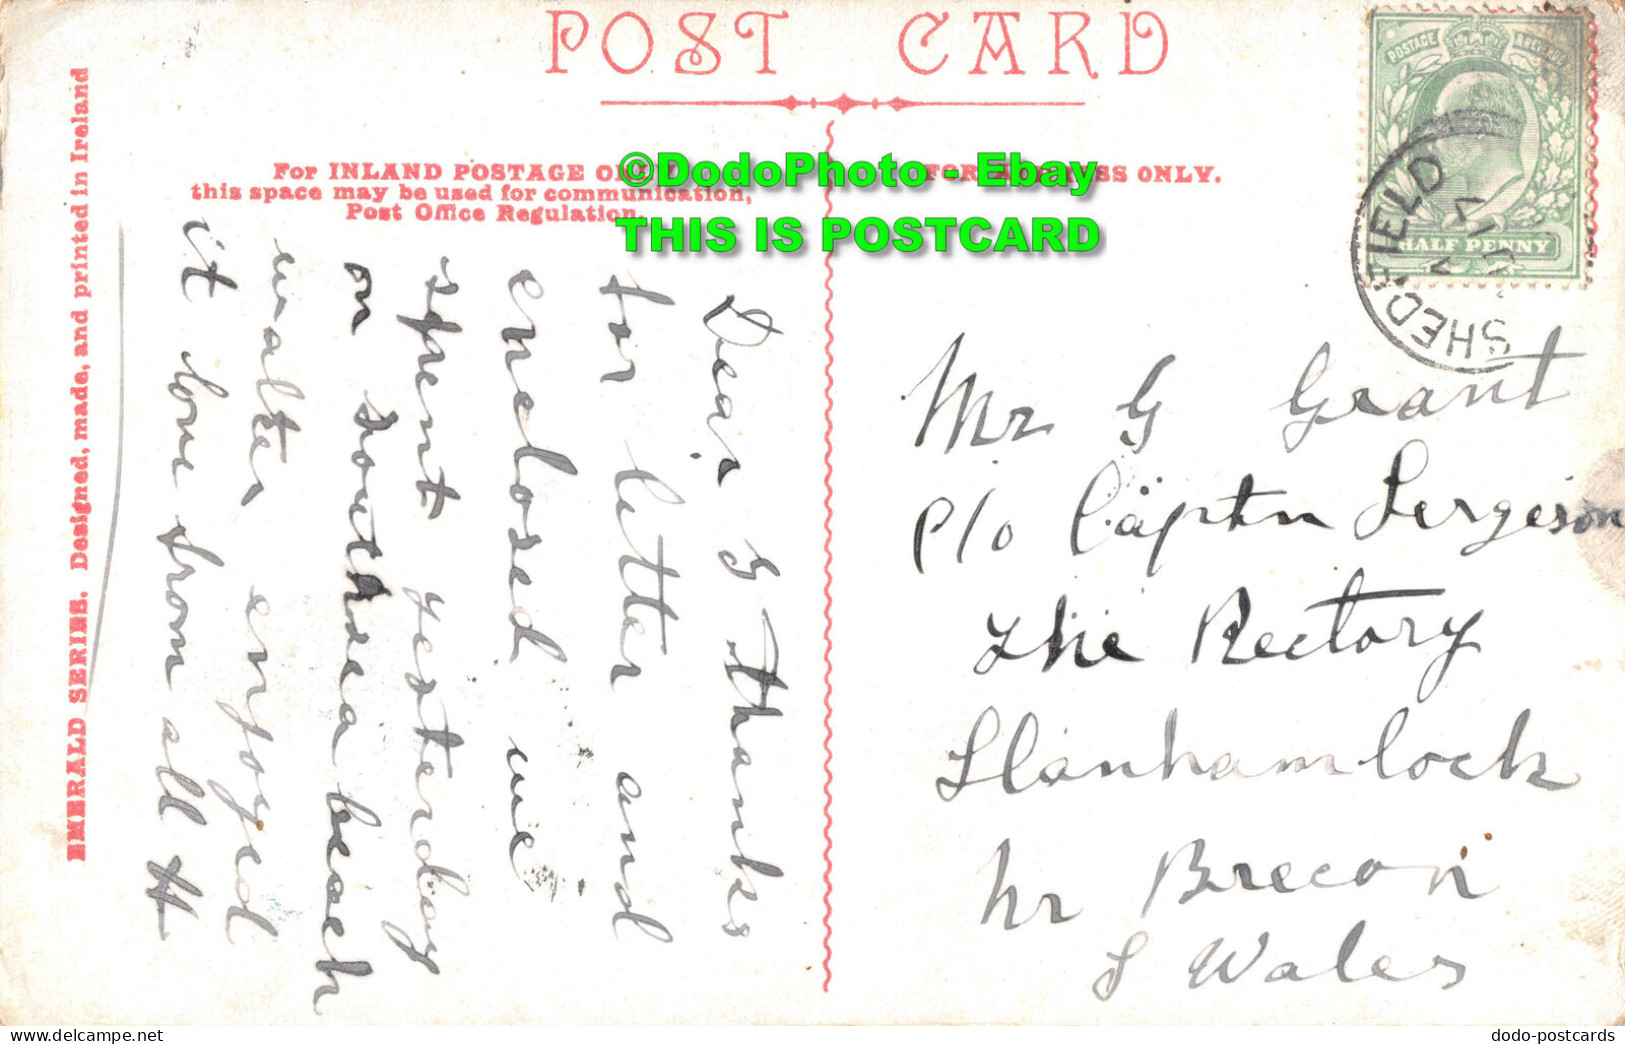 POST CARD
For INLAND POSTAGE ONLY
this space may be used for communication,
Post Office Regulation.
FOR ADDRESS ONLY.
©DodoPhoto - Ebay
THIS IS POSTCARD
POSTAGE
HALF PENNY
SHEDFIELD
EMERALD SERIES. Designed, made, and printed in Ireland
Dear G thanks
for letter and
enclosed we
spent yesterday
on Southsea beach
walter enjoyed
it love from all H
Mr G Grant
c/o Captn Fergeson
The Rectory
Llanhamlock
nr Brecon
S Wales
dodo-postcards